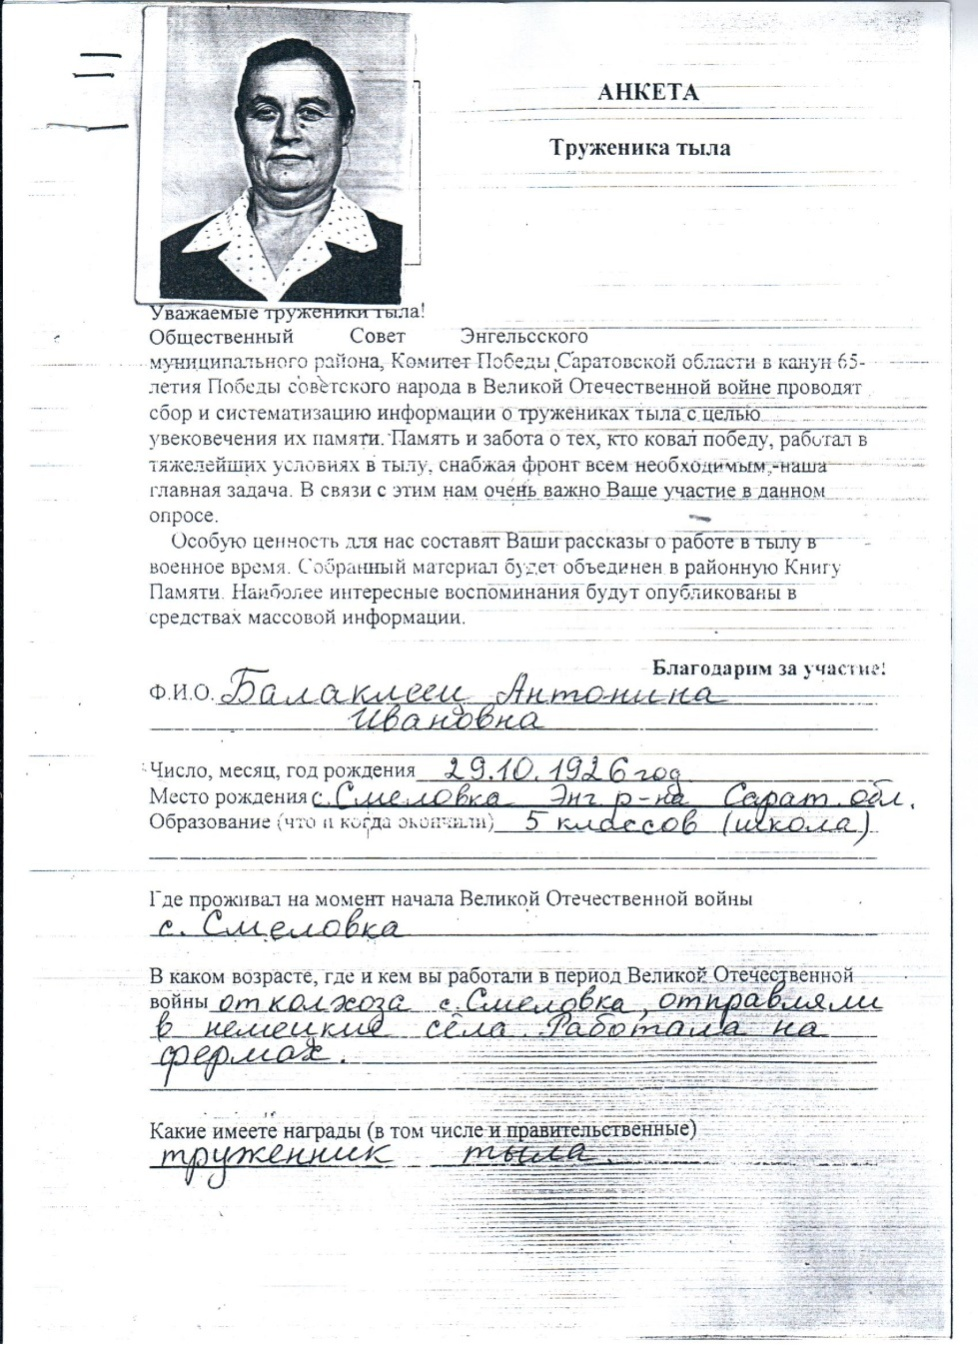 АНКЕТА
Труженика тыла
Уважаемые труженики тыла!
Общественный Совет Энгельсского
муниципального района, Комитет Победы Саратовской области в канун 65-
летия Победы советского народа в Великой Отечественной войне проводят
сбор и систематизацию информации о тружениках тыла с целью
увековечения их памяти. Память и забота о тех, кто ковал победу, работал в
тяжелейших условиях в тылу, снабжая фронт всем необходимым,-наша
главная задача. В связи с этим нам очень важно Ваше участие в данном
опросе.
Особую ценность для нас составят Ваши рассказы о работе в тылу в
военное время. Собранный материал будет объединен в районную Книгу
Памяти. Наиболее интересные воспоминания будут опубликованы в
средствах массовой информации.
Благодарим за участие!
Ф.И.О. Балаклеец Антонина
Ивановна
Число, месяц, год рождения 29.10.1926 год
Место рождения с.Смеловка Энг р-на Сарат. обл.
Образование (что и когда окончили) 5 классов (школа)
Где проживал на момент начала Великой Отечественной войны
с. Смеловка
В каком возрасте, где и кем вы работали в период Великой Отечественной
войны от колхоза с.Смеловка, отправляли
в немецкие сёла. Работала на
фермах.
Какие имеете награды (в том числе и правительственные)
труженник тыла.